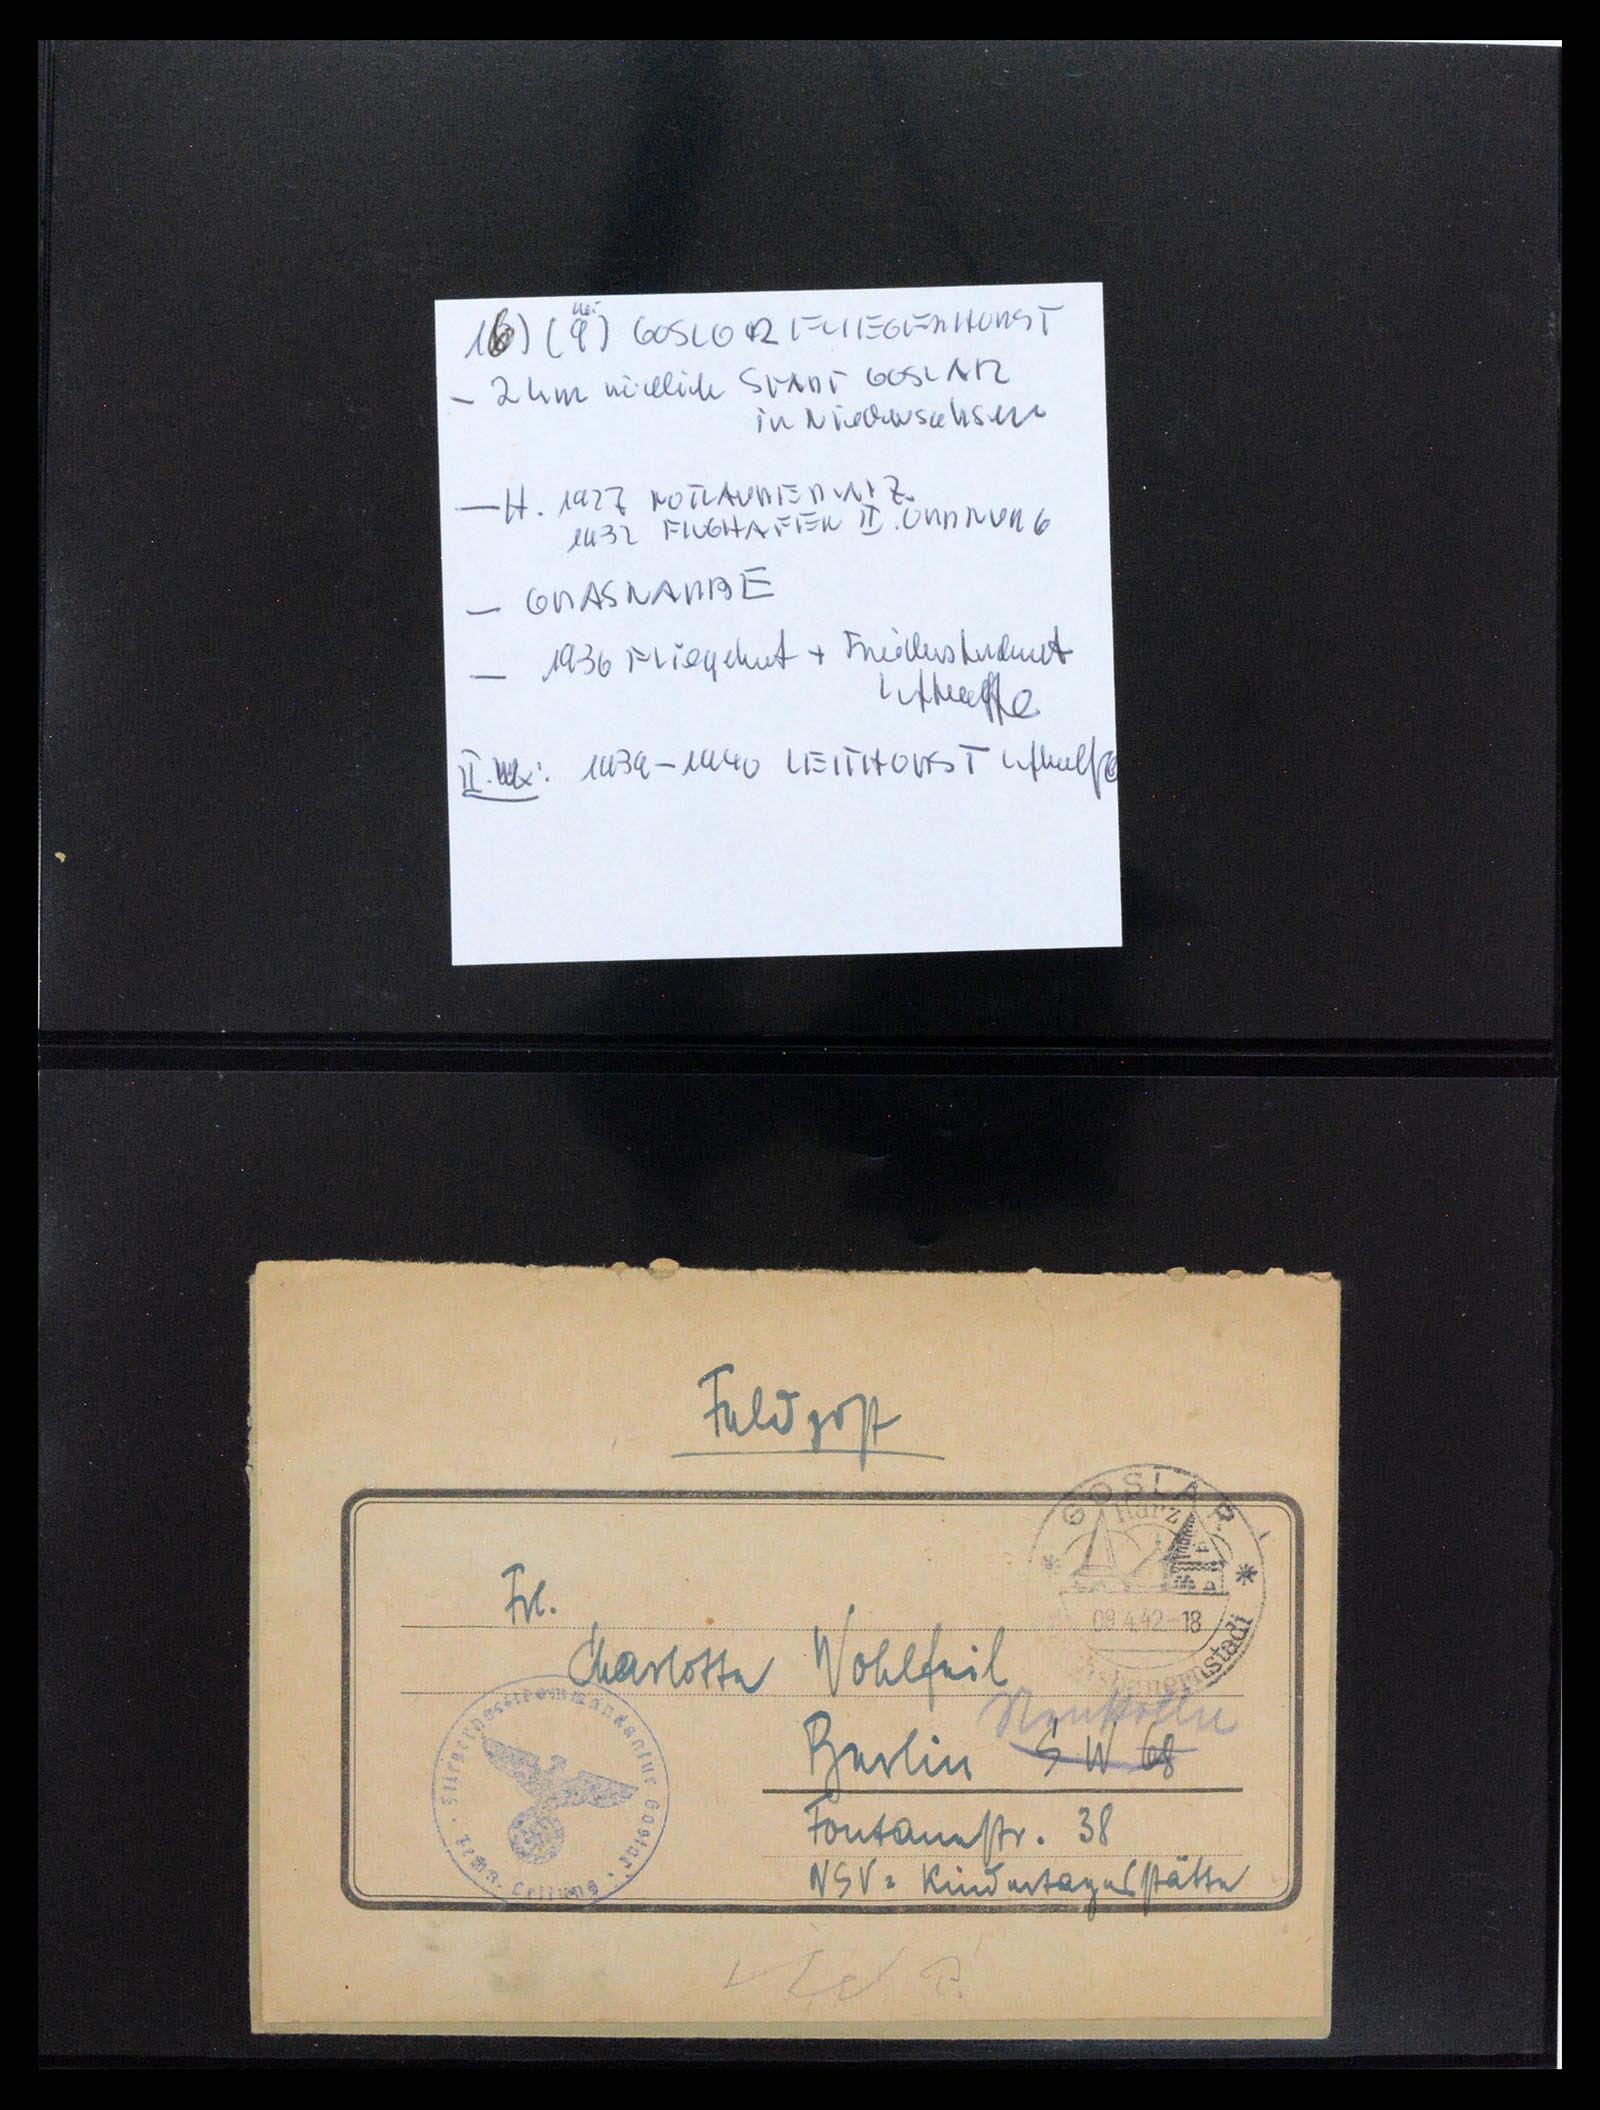 16) (9) GOSLAR FLIEGERHORST
- 2 km nördlich STADT GOSLAR
in Niedersachsen
- H. 1927 NOTLANDEPLATZ
1932 FLUGHAFEN II. ORDNUNG
- GRASNARBE
- 1936 Fliegerhorst + Friedensstandort
Luftwaffe
II. WK: 1939-1940 LEITHORST Luftwaffe
Feldpost
GOSLAR 1
Harz
09.4.42-18
Reichsbauernstadt
Frl.
Charlotte Wohlfeil
Neukölln
Berlin SW 68
Fontanestr. 38
NSV = Kindertagesstätte
Fliegerhorstkommandantur Goslar